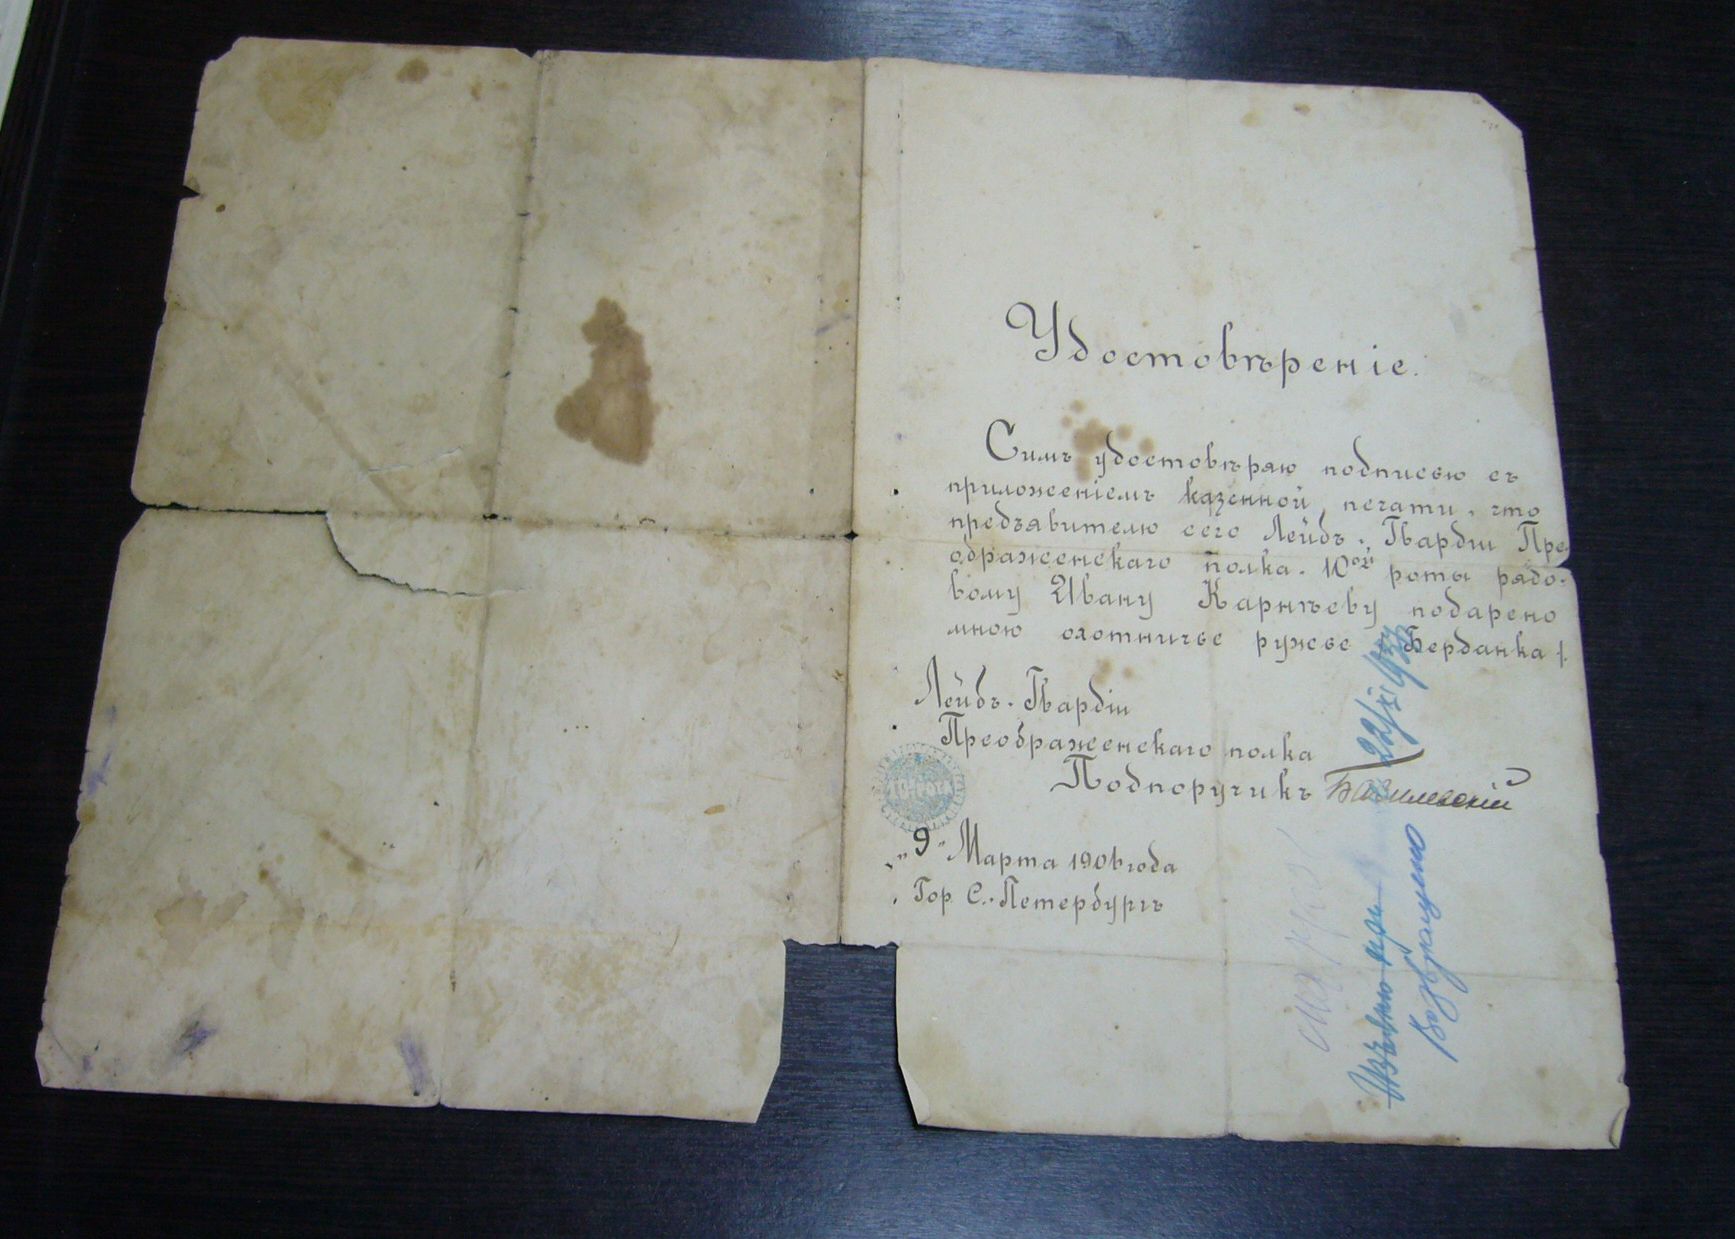 Удостовѣренiе.
Симъ удостовѣряю подписью съ
приложенiемъ казенной печати, что
предъявителю сего Лейбъ-Гвардiи Пре
ображенскаго полка 10ой роты рядо-
вому Ивану Карпѣеву подарено
мною охотничье ружье Берданка
Лейбъ-Гвардiи
Преображенскаго полка
Подпоручикъ
10-РОТА
"9" Марта 1906 года
Гор. С.-Петербургъ
22/XI
Возвращено